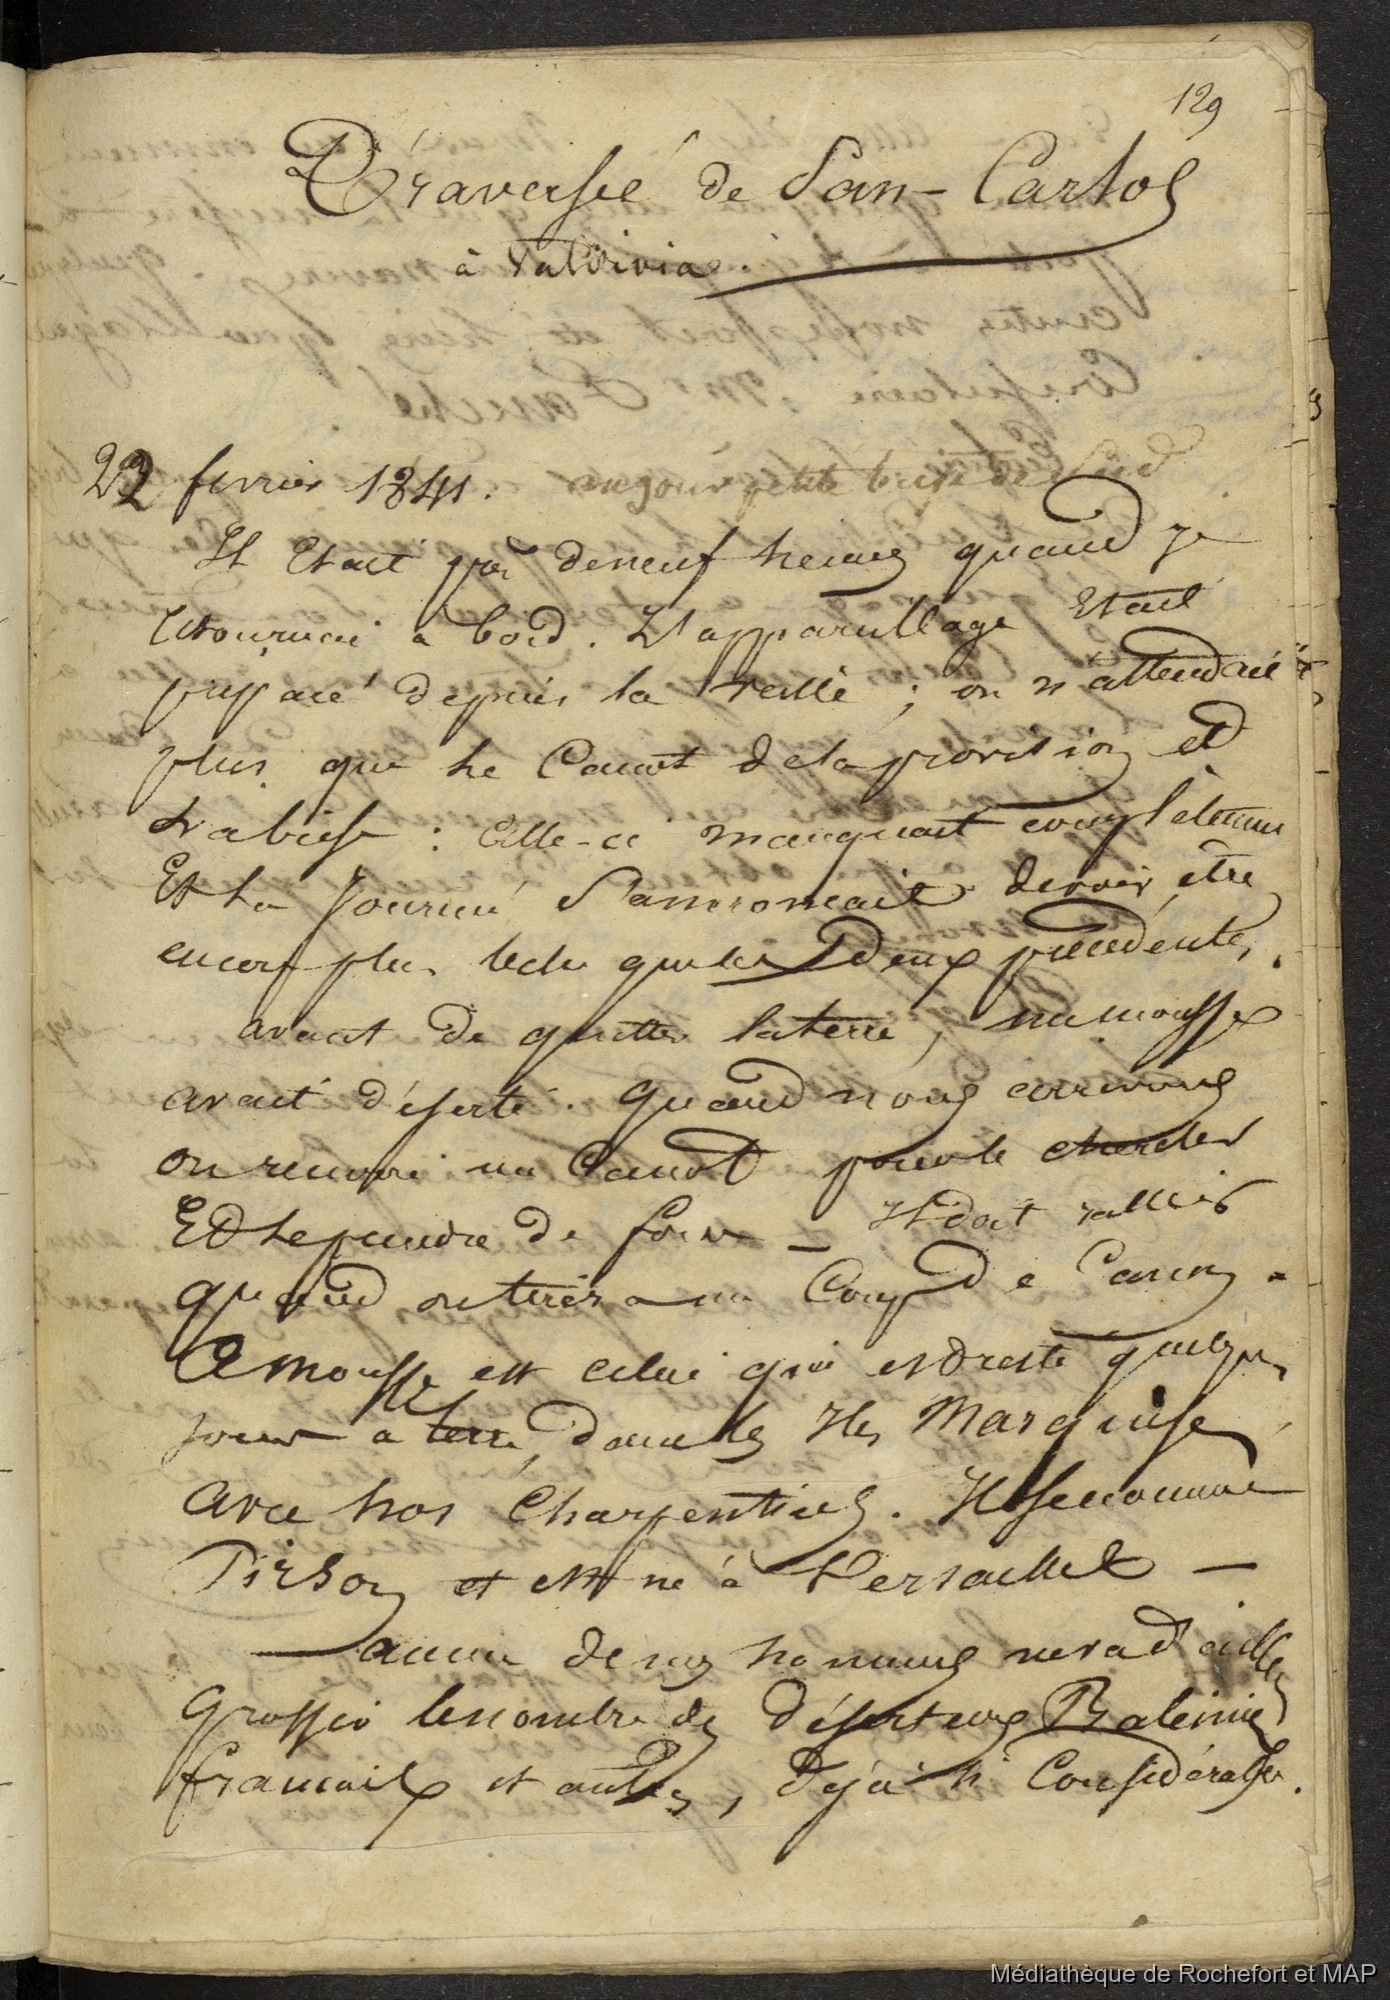 129
Traversée de San-Carlos
à Valdivia.
22 fevrier 1841. au jour petite brise de Sud
Il était près de neuf heures quand je
retournai à bord. L'appareillage était
préparé depuis la veille ; on n'attendait
plus que le Canot de la provision et
la brise : Celle-ci manquait complètement
Et la journée s'annonçait devoir être
encore plus belle que les Deux précédentes.
avant de quitter la terre, un mousse
avait déserté. Quand nous arrivons
on renvoie un Canot pour le chercher
Et le prendre de force – Il doit rallier
quand on tirera un Coup de Canon.
Ce mousse est celui qui est resté quelques
jours à terre, dans les Iles Marquises
avec nos Charpentiers. Il se nomme
Pirson et est né à Versailles –
– aucun de nos hommes n'ira d'ailleurs
Grossir le nombre des déserteurs Baleiniers
français et autres, déjà si Considérable.
Médiathèque de Rochefort et MAP